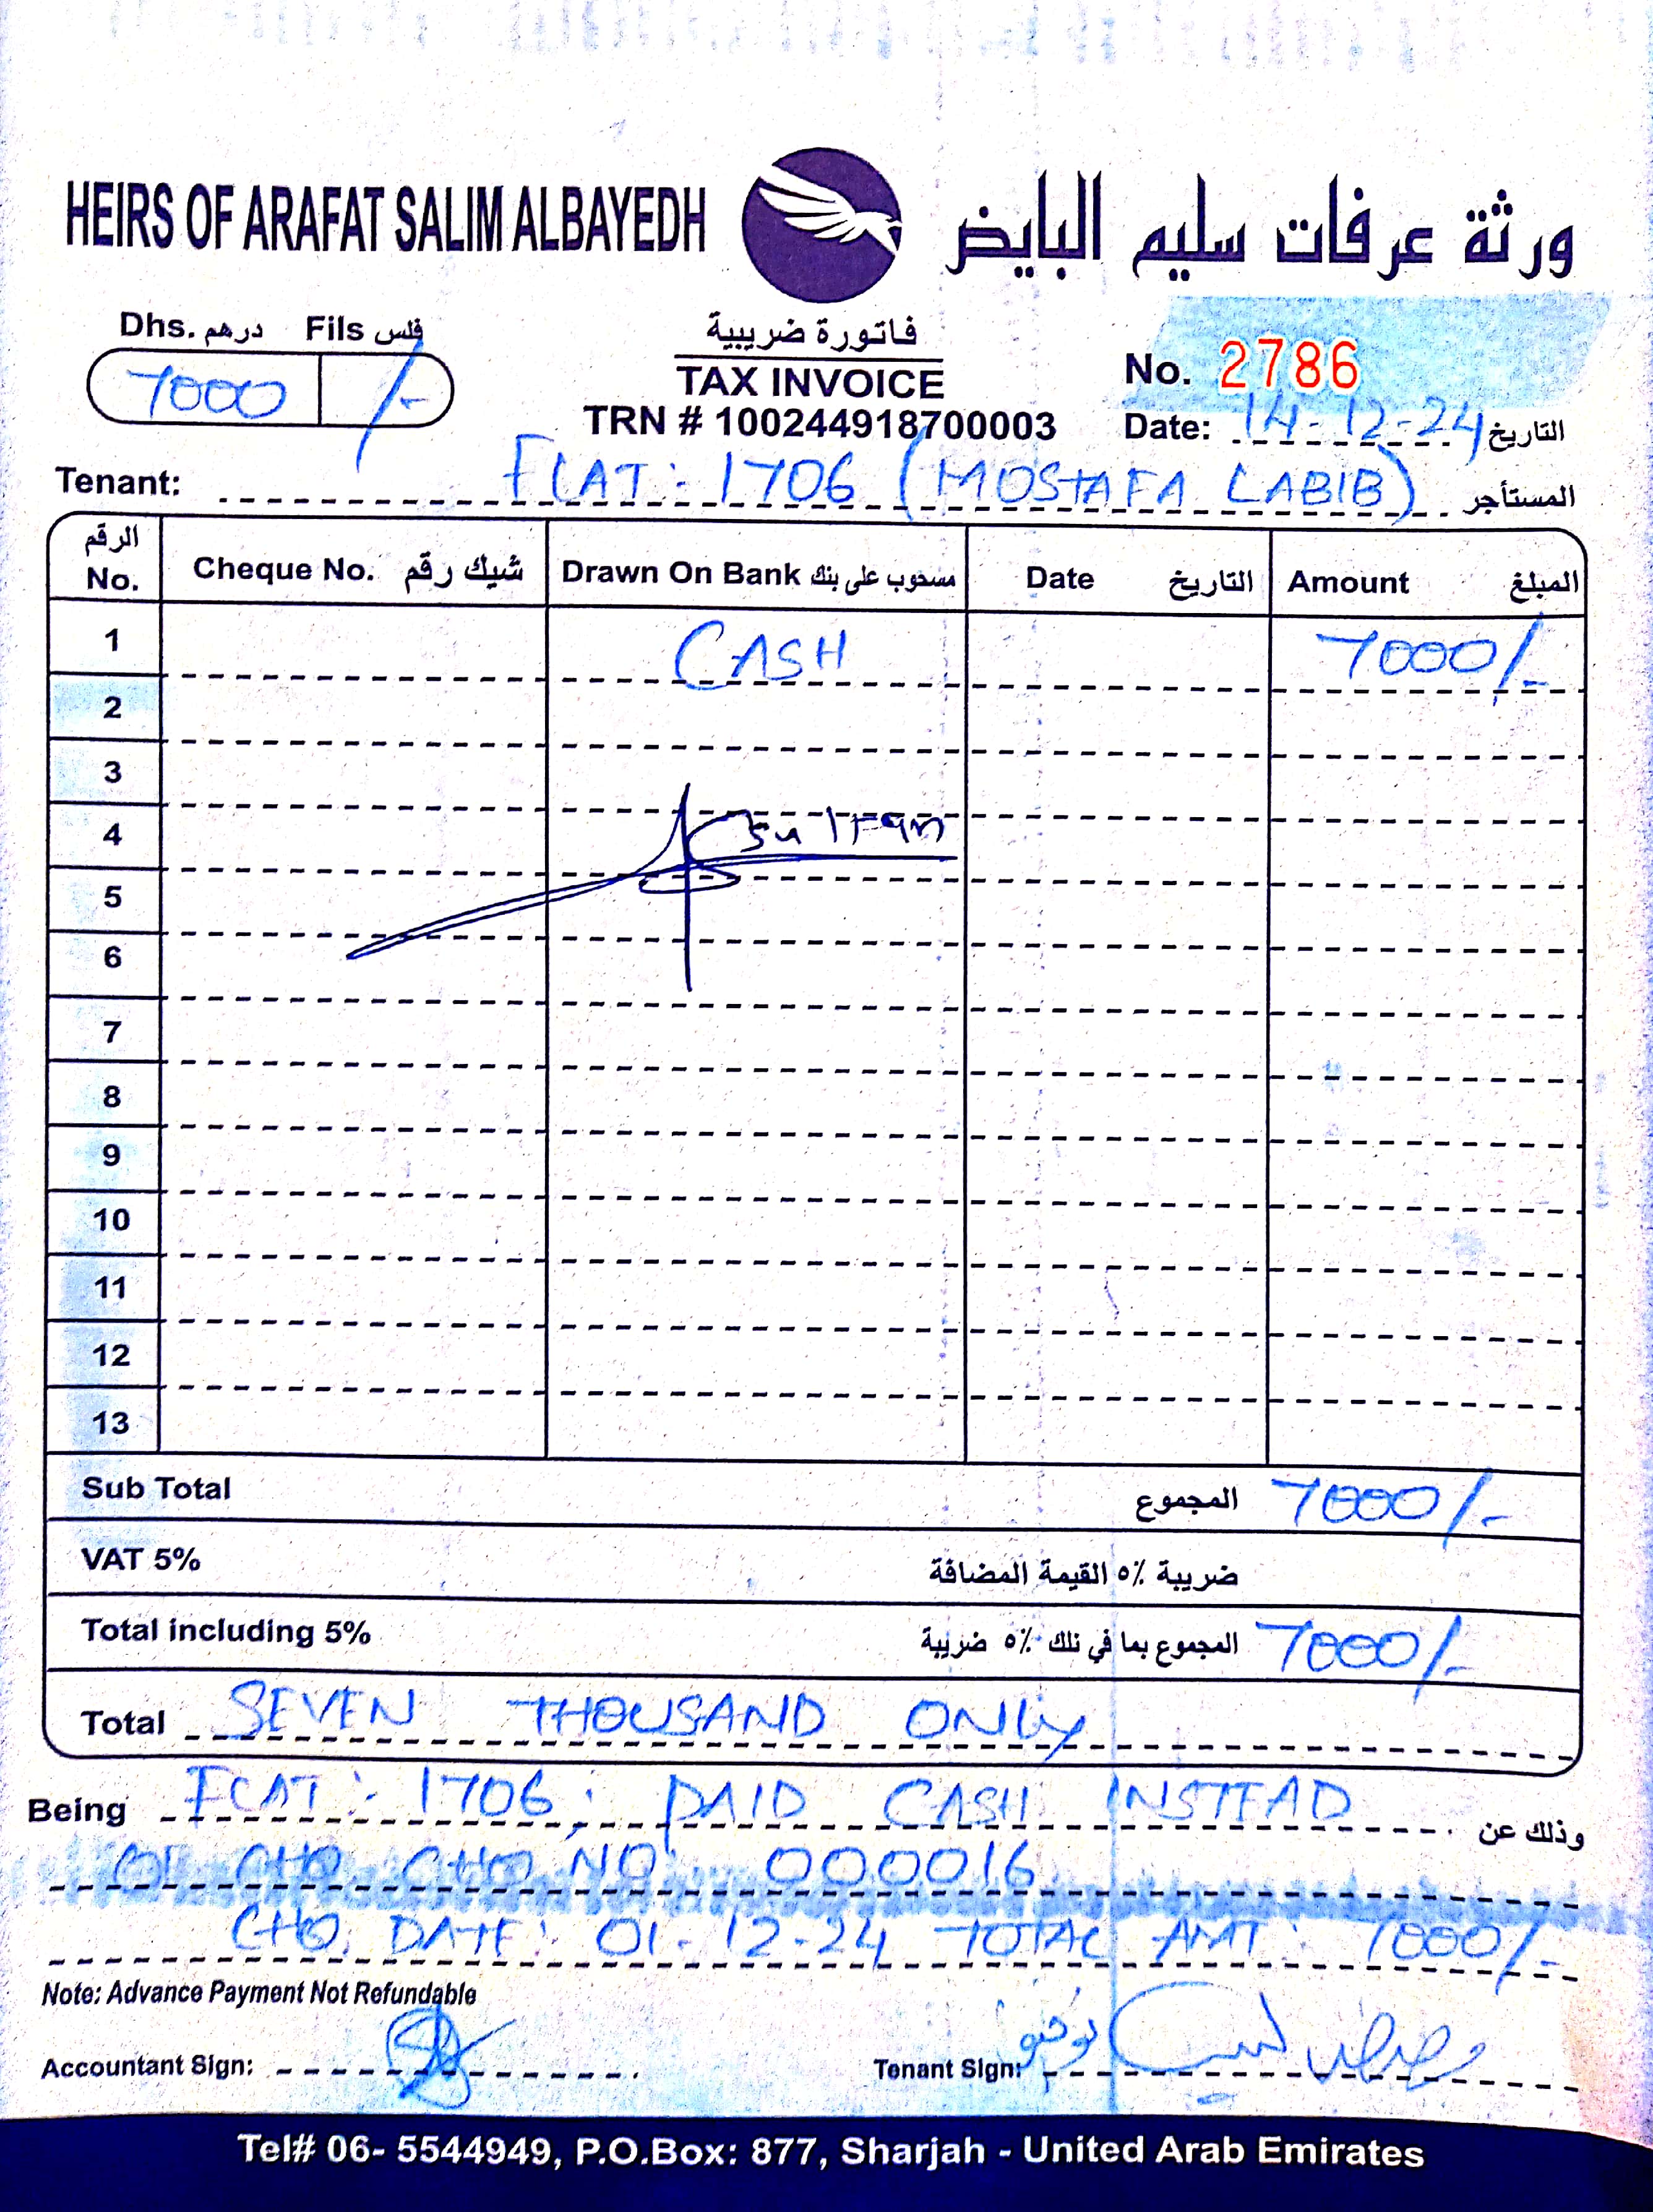 HEIRS OF ARAFAT SALIM ALBAYEDH ورثة عرفات سليم البايض
Dhs. درهم Fils فلس
7000 /-
فاتورة ضريبية
TAX INVOICE
TRN # 100244918700003
No. 2786
Date: 14-12-24 التاريخ
Tenant: FLAT: 1706 (MOSTAFA LABIB) المستأجر
الرقم No. Cheque No. شيك رقم Drawn On Bank مسحوب على بنك Date التاريخ Amount المبلغ
1 CASH 7000/-
2
3
4
5
6
7
8
9
10
11
12
13
Sub Total المجموع 7000/-
VAT 5% ضريبة ٥٪ القيمة المضافة
Total including 5% المجموع بما في ذلك ٥٪ ضريبة 7000/-
Total SEVEN THOUSAND ONLY
Being FLAT: 1706; PAID CASH INSTEAD وذلك عن
OF CHQ CHQ NO: 000016
CHQ. DATE: 01-12-24 TOTAL AMT: 7000/-
Note: Advance Payment Not Refundable
Accountant Sign:
Tenant Sign: مصطفى لبيب
Tel# 06- 5544949, P.O.Box: 877, Sharjah - United Arab Emirates